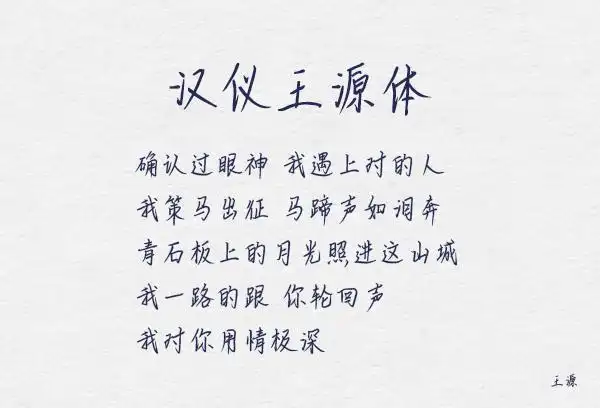 汉仪王源体
确认过眼神 我遇上对的人
我策马出征 马蹄声如泪奔
青石板上的月光照进这山城
我一路的跟 你轮回声
我对你用情极深
王源